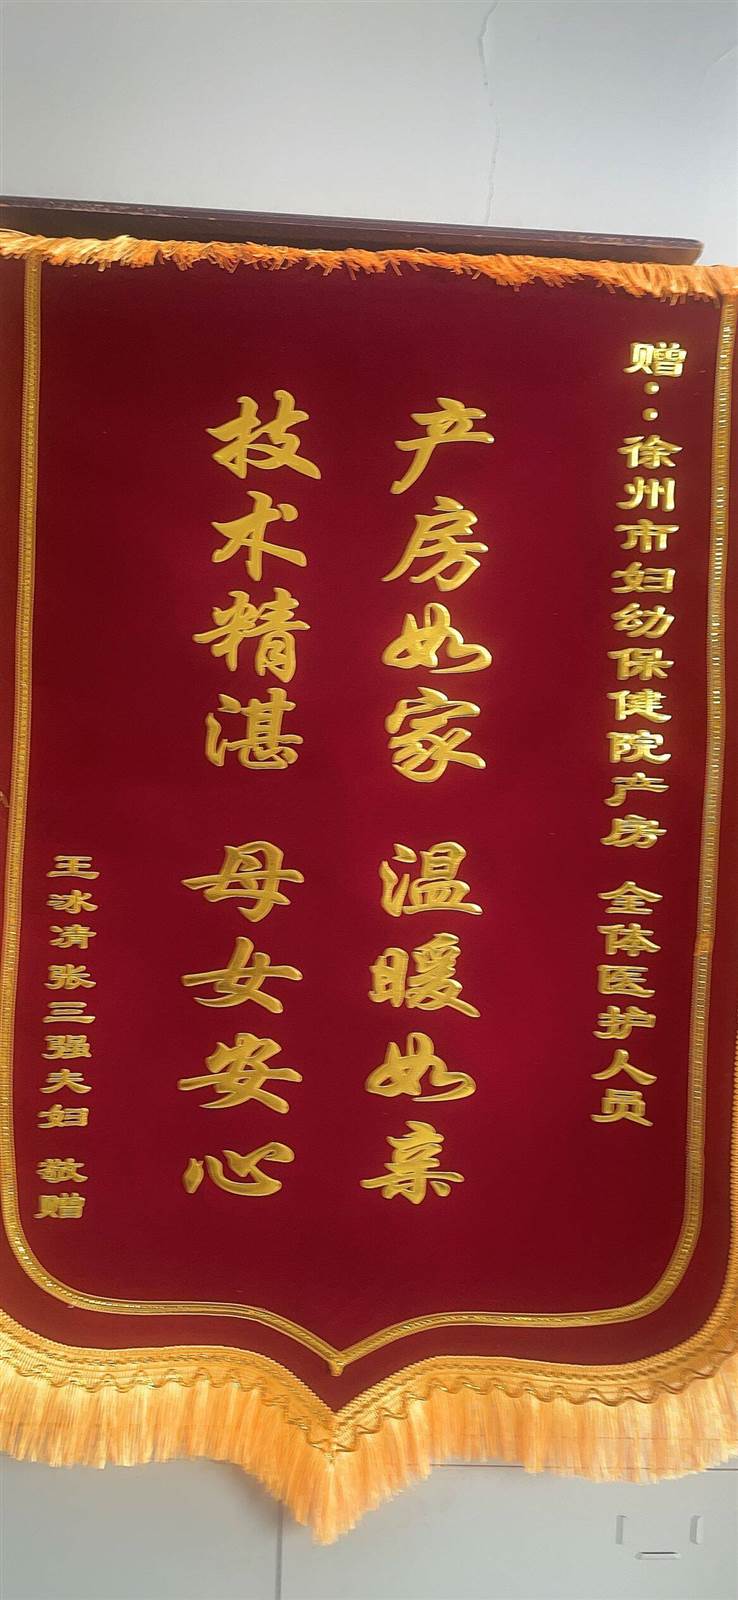 赠：徐州市妇幼保健院产房 全体医护人员
产房如家 温暖如亲
技术精湛 母女安心
王冰清张三强夫妇 敬赠